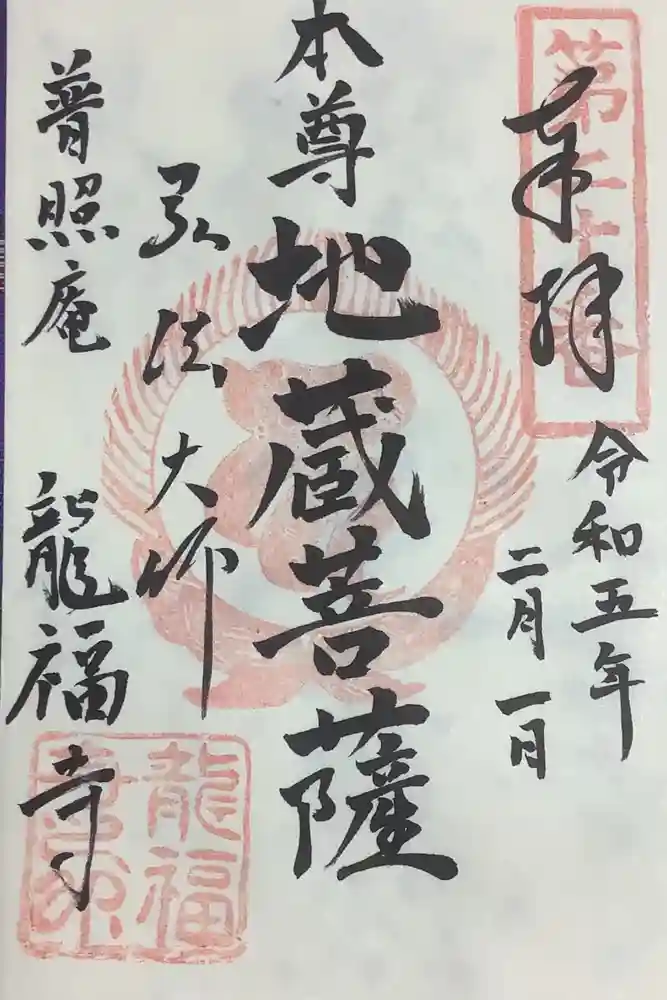 第二十番
奉拝
令和五年
二月一日
本尊
地蔵菩薩
弘法大師
普照庵
龍福寺
龍福
寺印